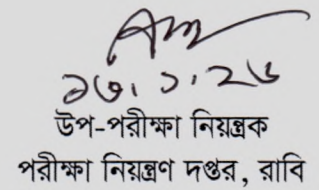 ২৬
উপ-পরীক্ষা নিয়ন্ত্রক
পরীক্ষা নিয়ন্ত্রণ দপ্তর, রাবি